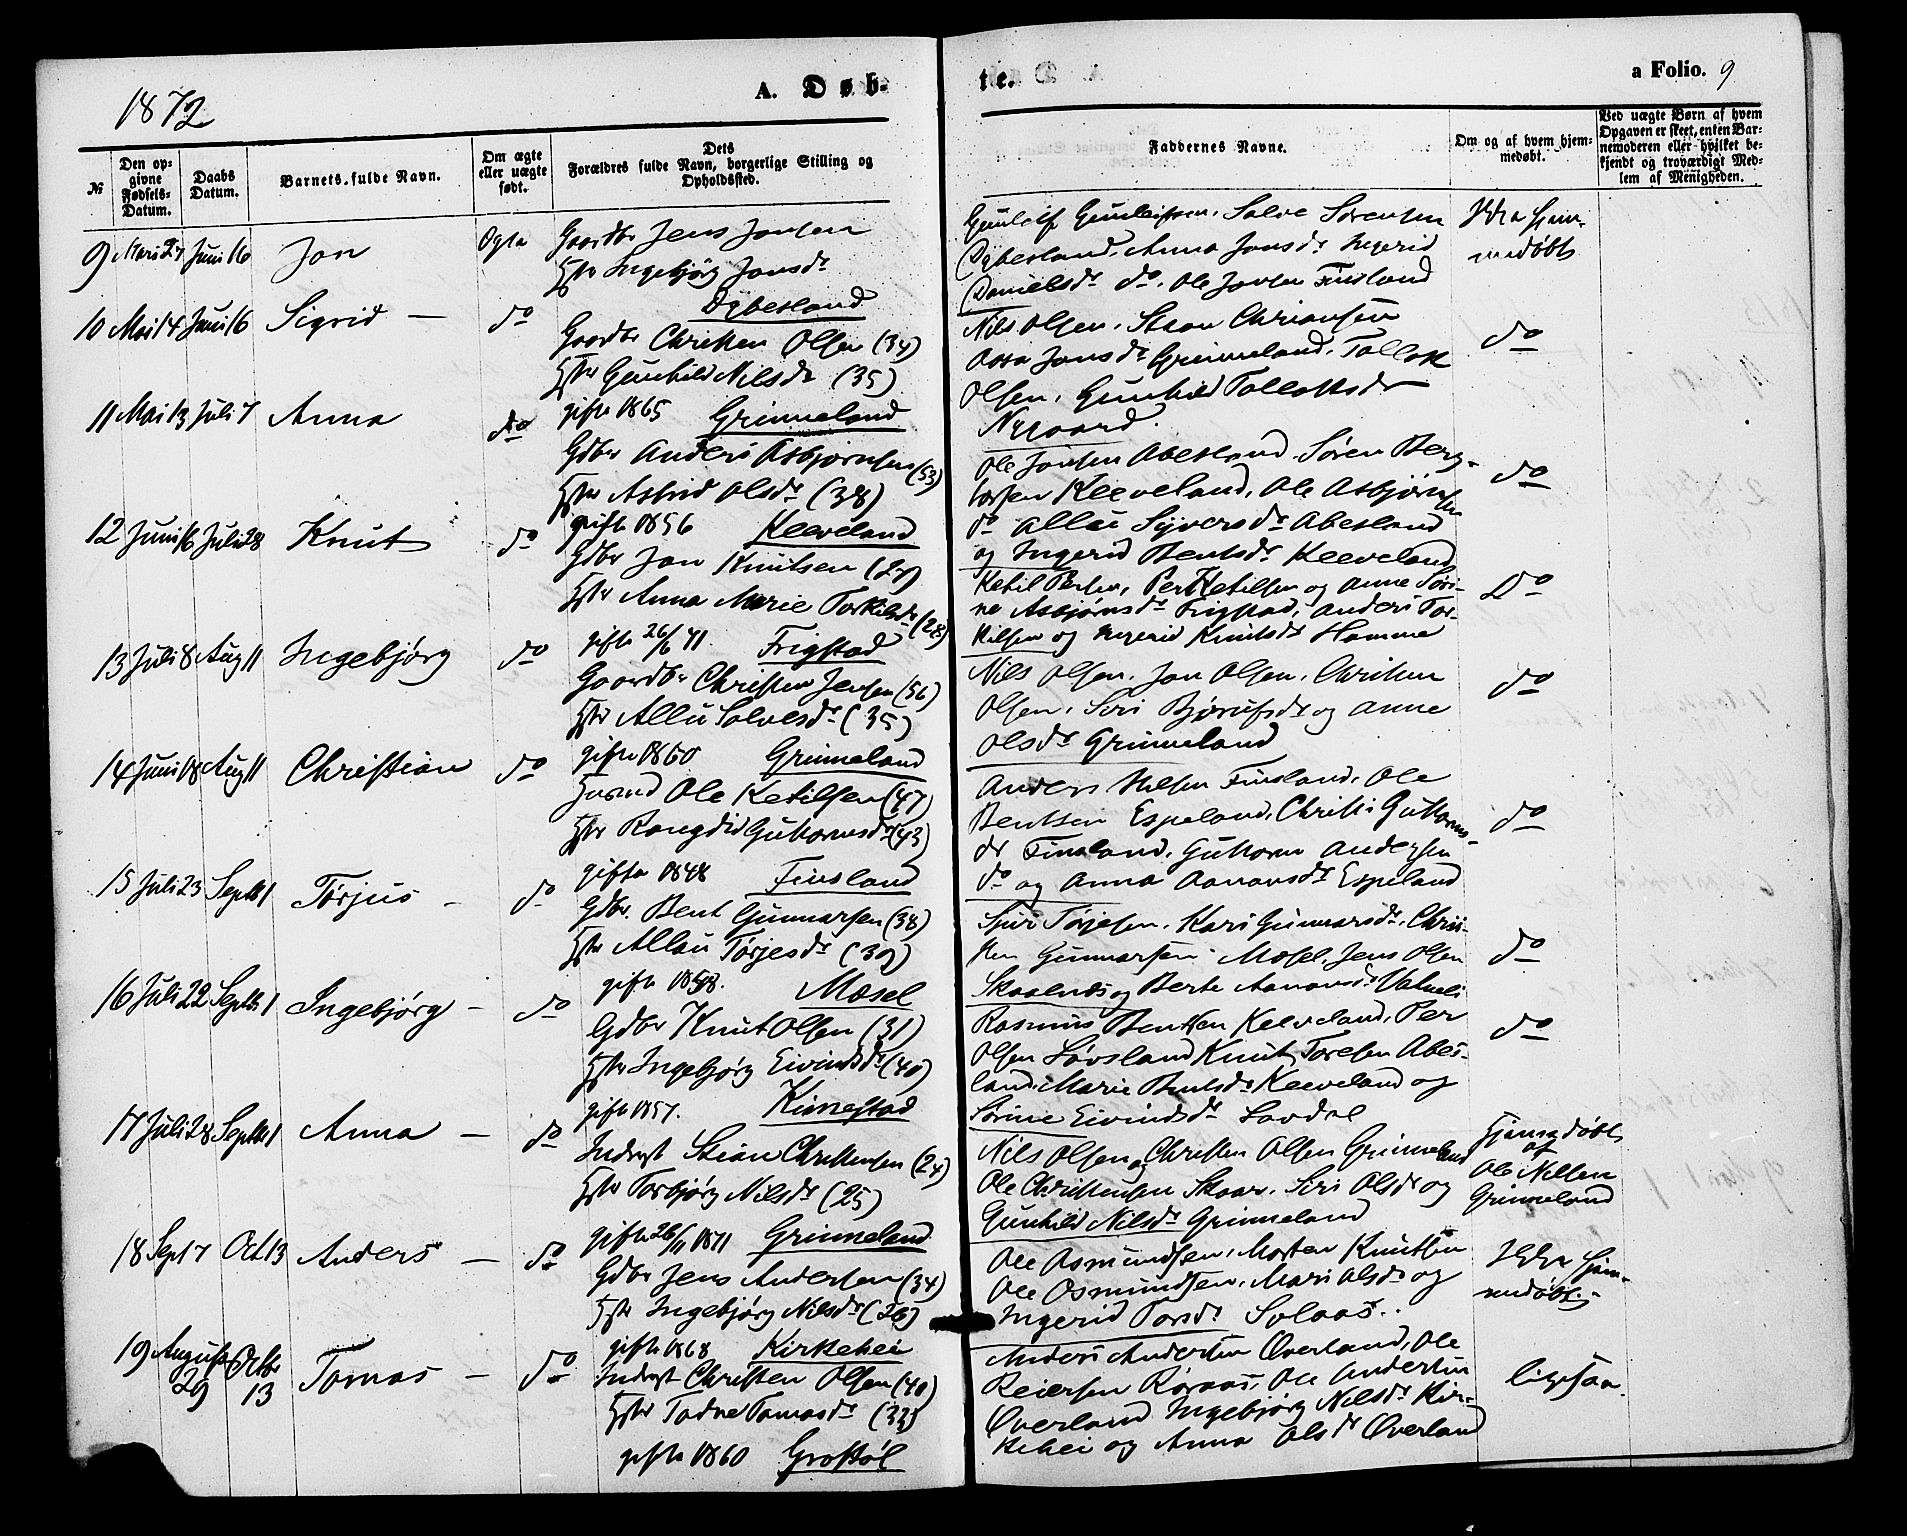 1872
A. Døb-
te.
a Folio. 9
№
Den opgivne Fødsels-Datum.
Daabs Datum.
Barnets fulde Navn.
Om ægte eller uægte født.
Dets Forældres fulde Navn, borgerlige Stilling og Opholdssted.
Faddernes Navne.
Om og af hvem hjemmedøbt.
Ved uægte Børn af hvem Opgaven er skeet, enten Barnemoderen eller hvilket bekjendt og troværdigt Medlem af Menigheden.
9 Juni 16 Jon Ægte Gaardbr Jens Jonsen
Hstr Ingebjørg Jonsdr
Dybesland
Salve Sørensen
Dybesland, Anna Jonsdr Ingerid
Danielsdr do, Ole Jonsen Finsland
Ikke hjem-
medøbt
10 Mai 14 Juni 16 Sigrid — do
Gaardbr Christen Olsen (34)
Hstr Gunhild Nilsdr (35)
gifte 1865 Grimeland
Nils Olsen, Christensen
Jonsdr Grimeland, Tallak
Olsen, Gunhild Tallaksdr
Nygaard.
do
11 Mai 13 Juli 7 Anna do
Gdbr Anders Asbjørnsen (53)
Hstr Astrid Olsdr (38)
gifte 1856 Kleeveland
Ole Jonsen Abesland, Søren Berg-
Kleeveland, Ole Asbjørnsen
do Sijversdr Abesland
og Ingerid Bentsdr Kleeveland
do
12 Juni 16 Juli 28 Knut do
Gdbr Jon Knutsen (27)
Hstr Anna Marie Torkilsdr (28)
gifte 26/6 71 Frigstad
Ketil Persen, Per Ketilsen og Anne Søri-
ne Asbjørnsdr Frigstad, Anders Tor-
kilsen og Ingerid Knutsdr Homme
Do
13 Juli 8 Aug 11 Ingebjørg do
Gaardbr Christen Jensen (56)
Hstr Salvesdr (35)
gifte 1860 Grimeland
Nils Olsen, Jon Olsen, Christen
Olsen, Siri og Anne
Olsdr Grimeland
do
14 Juni 18 Aug 11 Christian do
Ole Ketilsen (47)
Hstr Rangdid Guttormsdr (43)
gifte 1848 Finsland
Anders Finsland, Ole
Bentsen Espeland, Guttorms-
dr Finsland, Guttorm Andersen
do og Anna Aanonsdr Espeland
do
15 Juli 23 Septb 1 Tørjus - do
Gdbr. Bent Gunnarsen (38)
Hstr Tørjesdr (39)
gifte Mosel
Tørjesen, Kari Gunnarsdr, Chris-
ten Gunnarsen Mosel, Jens Olsen
og Berte Aanonsdr
do
16 Juli 22 Septb 1 Ingebjørg - do
Gdbr Knut Olsen (31)
Hstr Ingebjørg Eivindsdr (40)
gifte 1857. Kirnestad
Rasmus Bentsen Kleveland, Per
Olsen Løvsland Knut Toresen Abes-
land, Marie Bentsdr Kleeveland og
Sørine Eivindsdr
do
17 Juli 28 Septb 1 Anna — do
Inderst Stian Christensen (24)
Hstr Torbjørg Nilsdr (25)
gifte 26/11 1871 Grimeland
Nils Olsen og Christen Olsen Grimeland
Ole Christensen Skaar, Siri Olsdr og
Gunhild Nilsdr Grimeland
Hjemmedøbt
af
Ole Nilsen
Grimeland
18 Sept 7 Oct 13 Anders — do
Gdbr Jens Andersen (34)
Hstr Ingebjørg Nilsdr (26)
gifte 1868 Kirkehei
Ole Osmundsen, Morten Knutsen
Ole Osmundsen, Mari Olsdr og
Ingerid Torsdr Solaas.
Ikke hjem-
medøbt
19 August 29 Octbr 13 Tomas — do
Inderst Christen Olsen (40)
Hstr Tomasdr (33)
gifte 1860
Anders Andersen Øverland, Ole
Reiersen Røraas, Ole Andersen
Øverland Ingebjørg Nilsdr Kir-
kehei og Anna Olsdr Øverland
ligesaa.